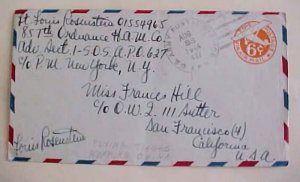 Lt. Louis Rosenstein 01554965
857th Ordnance H.A.M. Co.
Adv. Sect. 1-S.O.S. A.P.O. 637
c/o P.M. New York, N.Y.
AUG
6¢
Miss Frances Hill
c/o O.W.I. 111 Sutter
San Francisco (4)
California
U.S.A
Louis Rosenstein